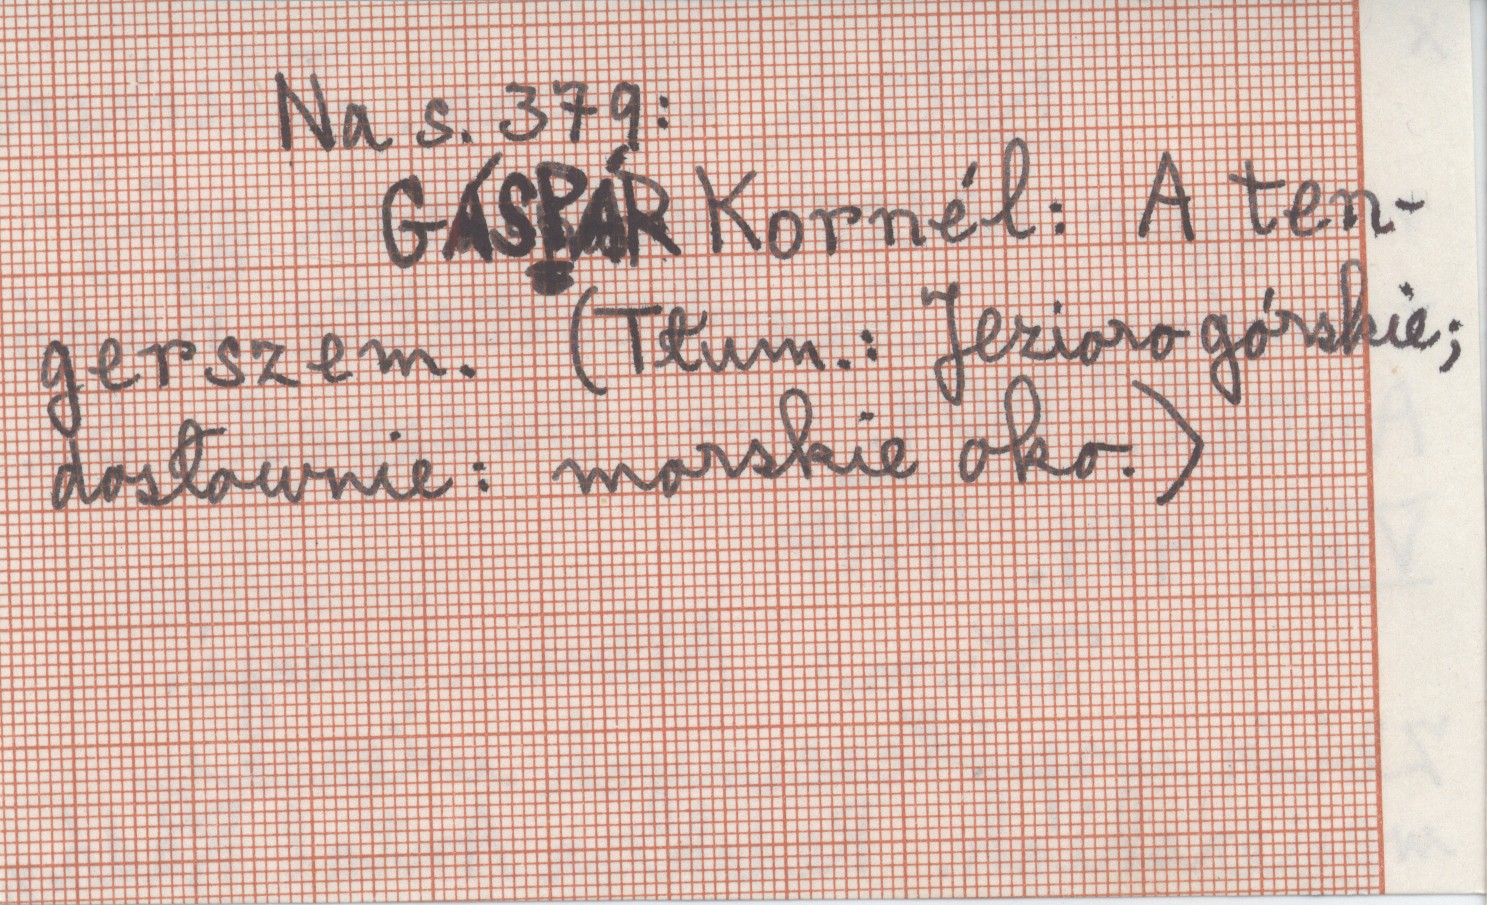 Na s. 379:
GÁSPÁR Kornél: A ten-
gerszem. (Tłum.: Jezioro górskie;
dosłownie: morskie oko.)